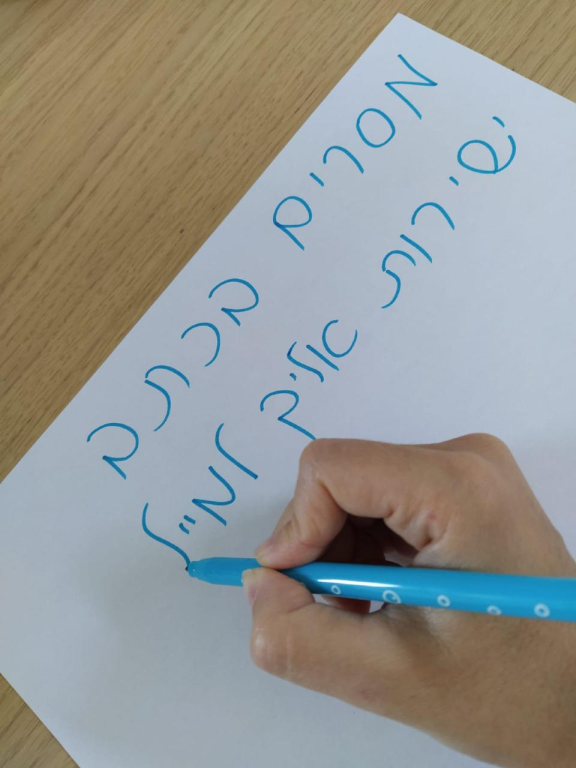 מסרים בכתב
ישירות אליך למייל